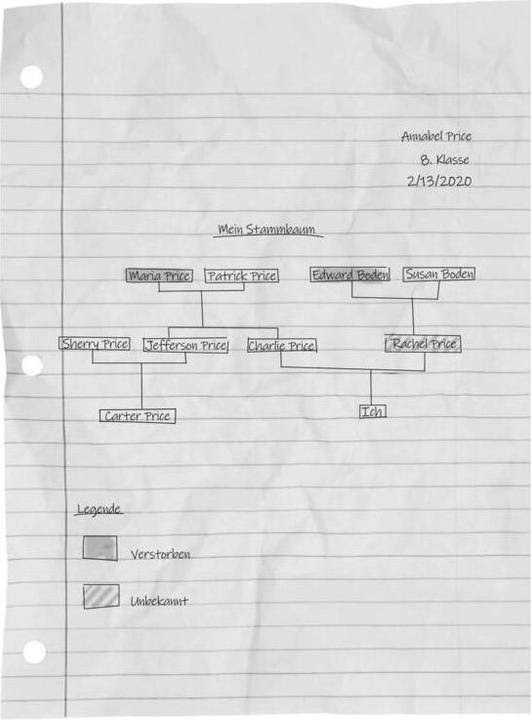 Annabel Price
8. Klasse
2/13/2020
Mein Stammbaum
Maria Price Patrick Price Edward Boden Susan Boden
Sherry Price Jefferson Price Charlie Price Rachel Price
Carter Price Ich
Legende
Verstorben
Unbekannt